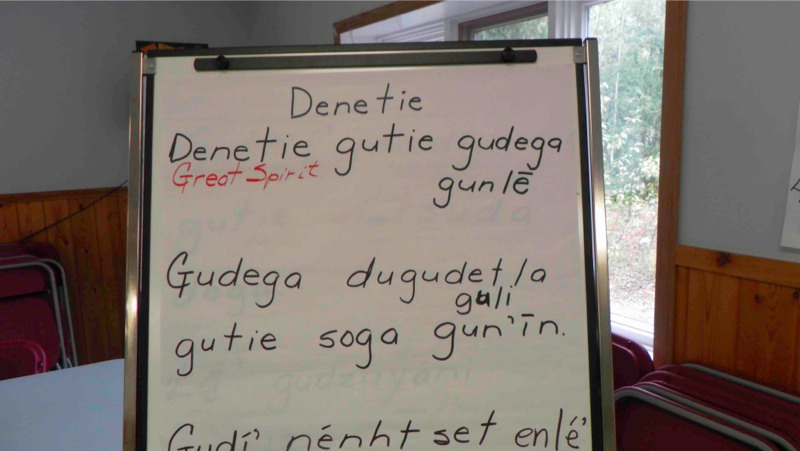 Denetie
Denetie gutie gudega
Great Spirit
gunlē
Gudega dugudet/a
guli
gutie soga gun'īn.
Gudí' nénht set enlé'